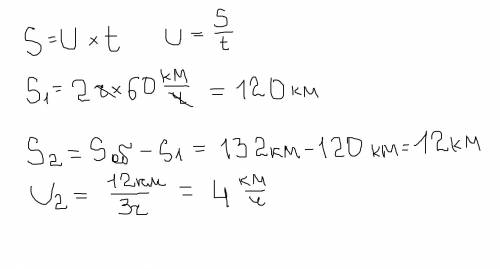 S=U×t U=S/t
S₁=2ч×60 км/ч =120км
S₂=Sоб-S₁=132км-120 км=12км
U₂= 12км/3ч = 4 км/ч